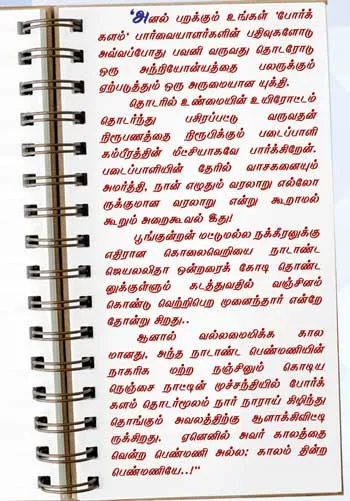 'அனல் பறக்கும் உங்கள் 'போர்க்
களம்' பார்வையாளர்களின் பதிவுகளோடு
அவ்வப்போது பவனி வருவது தொடரோடு
ஒரு அந்நியோன்யத்தை பலருக்கும்
ஏற்படுத்தும் ஒரு அருமையான யுக்தி.
தொடரில் உண்மையின் உயிரோட்டம்
தொடர்ந்து பகிரப்பட்டு வருவதன்
நிரூபணத்தை நிரூபிக்கும் படைப்பாளி
கம்பீரத்தின் மீட்சியாகவே பார்க்கிறேன்.
படைப்பாளியின் தேரில் வாசகனையும்
அமர்த்தி, நான் எழுதும் வரலாறு எல்லோ
ருக்குமான வரலாறு என்று கூறாமல்
கூறும் அறைகூவல் இது!
பூங்குன்றன் மட்டுமல்ல நக்கீரனுக்கு
எதிரான கொலைவெறியை நாடாண்ட
ஜெயலலிதா ஒன்றரைக் கோடி தொண்ட
னுக்குள்ளும் கடத்துவதில் வஞ்சினம்
கொண்டு வெற்றிபெற முனைந்தார் என்றே
தோன்று கிறது..
ஆனால் வல்லமைமிக்க கால
மானது, அந்த நாடாண்ட பெண்மணியின்
நாகரிக மற்ற நஞ்சினும் கொடிய
நெஞ்சை நாட்டின் முச்சந்தியில் போர்க்
களம் தொடர்மூலம் நார் நாராய் கிழிந்து
தொங்கும் அவலத்திற்கு ஆளாக்கிவிட்டி
ருக்கிறது. ஏனெனில் அவர் காலத்தை
வென்ற பெண்மணி அல்ல; காலம் தின்ற
பெண்மணியே..!"